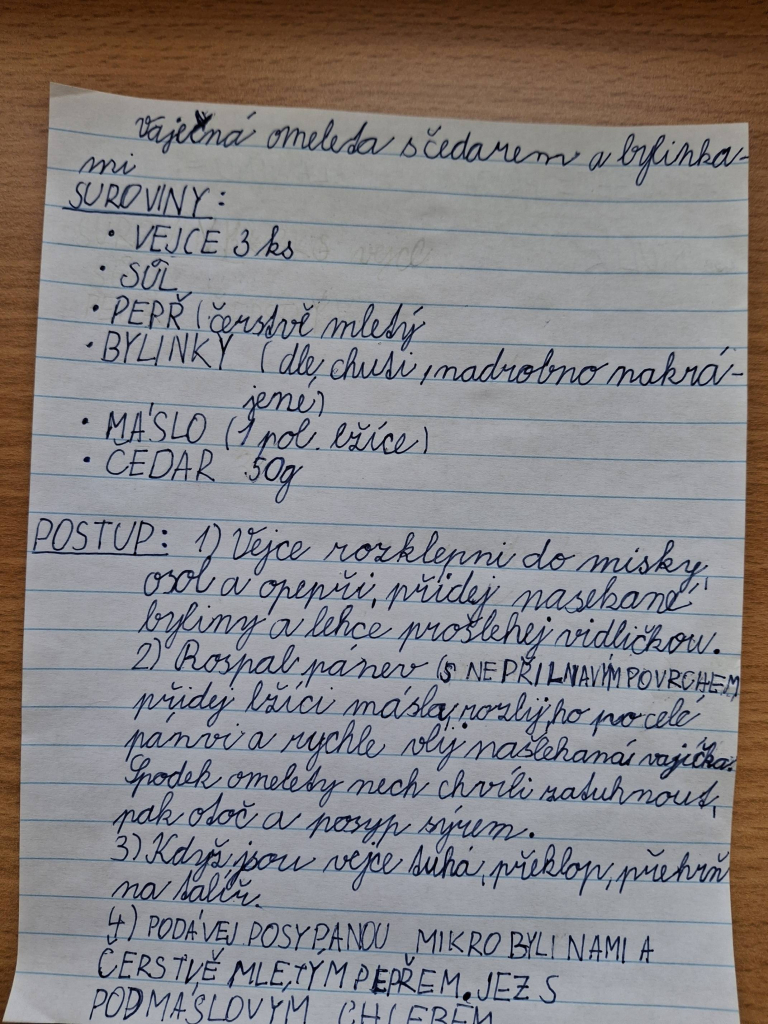 Vaječná omeleta s čedarem a bylinka-
mi
SUROVINY:
• VEJCE 3 ks
• SŮL
• PEPŘ (čerstvě mletý
• BYLINKY (dle chuti, nadrobno nakrá-
jené)
• MÁSLO (1 pol. lžíce)
• ČEDAR 50g
POSTUP: 1) Vejce rozklepni do misky,
osol a opepři, přidej nasekané
byliny a lehce prošlehej vidličkou.
2) Rospal pánev (S NEPŘILNAVÝM POVRCHEM
přidej lžíci másla, rozlij ho po celé
pánvi a rychle vlij našlehaná vajíčka.
Spodek omelety nech chvíli zatuhnout,
pak otoč a posyp sýrem.
3) Když jsou vejce tuhá, překlop, přehrň
na talíř.
4) PODÁVEJ POSYPANOU MIKROBYLINAMI A
ČERSTVĚ MLETÝM PEPŘEM. JEZ S
PODMÁSLOVÝM CHLEBEM